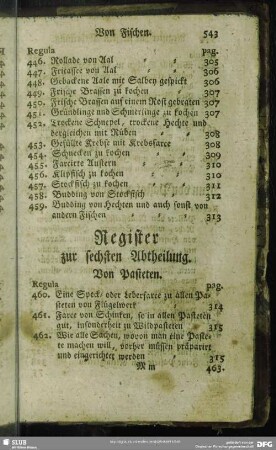 Von Fischen. 543
Regula pag.
446. Rollade von Aal 305
447. Fricassee von Aal 306
448. Gebackene Aale mit Salbey gespickt 306
449. Frische Brassen zu kochen 307
450. Frische Brassen auf einem Rost gebraten 307
451. Gründlinge und Schmerlinge zu kochen 307
452. Trockene Schnepel, trockene Hechte und
dergleichen mit Rüben 308
453. Gefüllte Krebse mit Krebsfarce 308
454. Schnecken zu kochen 309
455. Farcirte Austern 310
456. Klipfisch zu kochen 310
457. Stockfisch zu kochen 311
458. Budding von Stockfisch 312
459. Budding von Hechten und auch sonst von
andern Fischen 313
Register
zur sechsten Abtheilung.
Von Pasteten.
Regula pag.
460. Eine Speck- oder Leberfarce zu allen Pa-
steten von Flügelwerk 314
461. Farce von Schinken, so in allen Pasteten
gut, insonderheit zu Wildpasteten 315
462. Wie alle Sachen, wovon man eine Paste-
te machen will, vorher müssen präparirt
und eingerichtet werden 315
M m 463.
SLUB
DFG